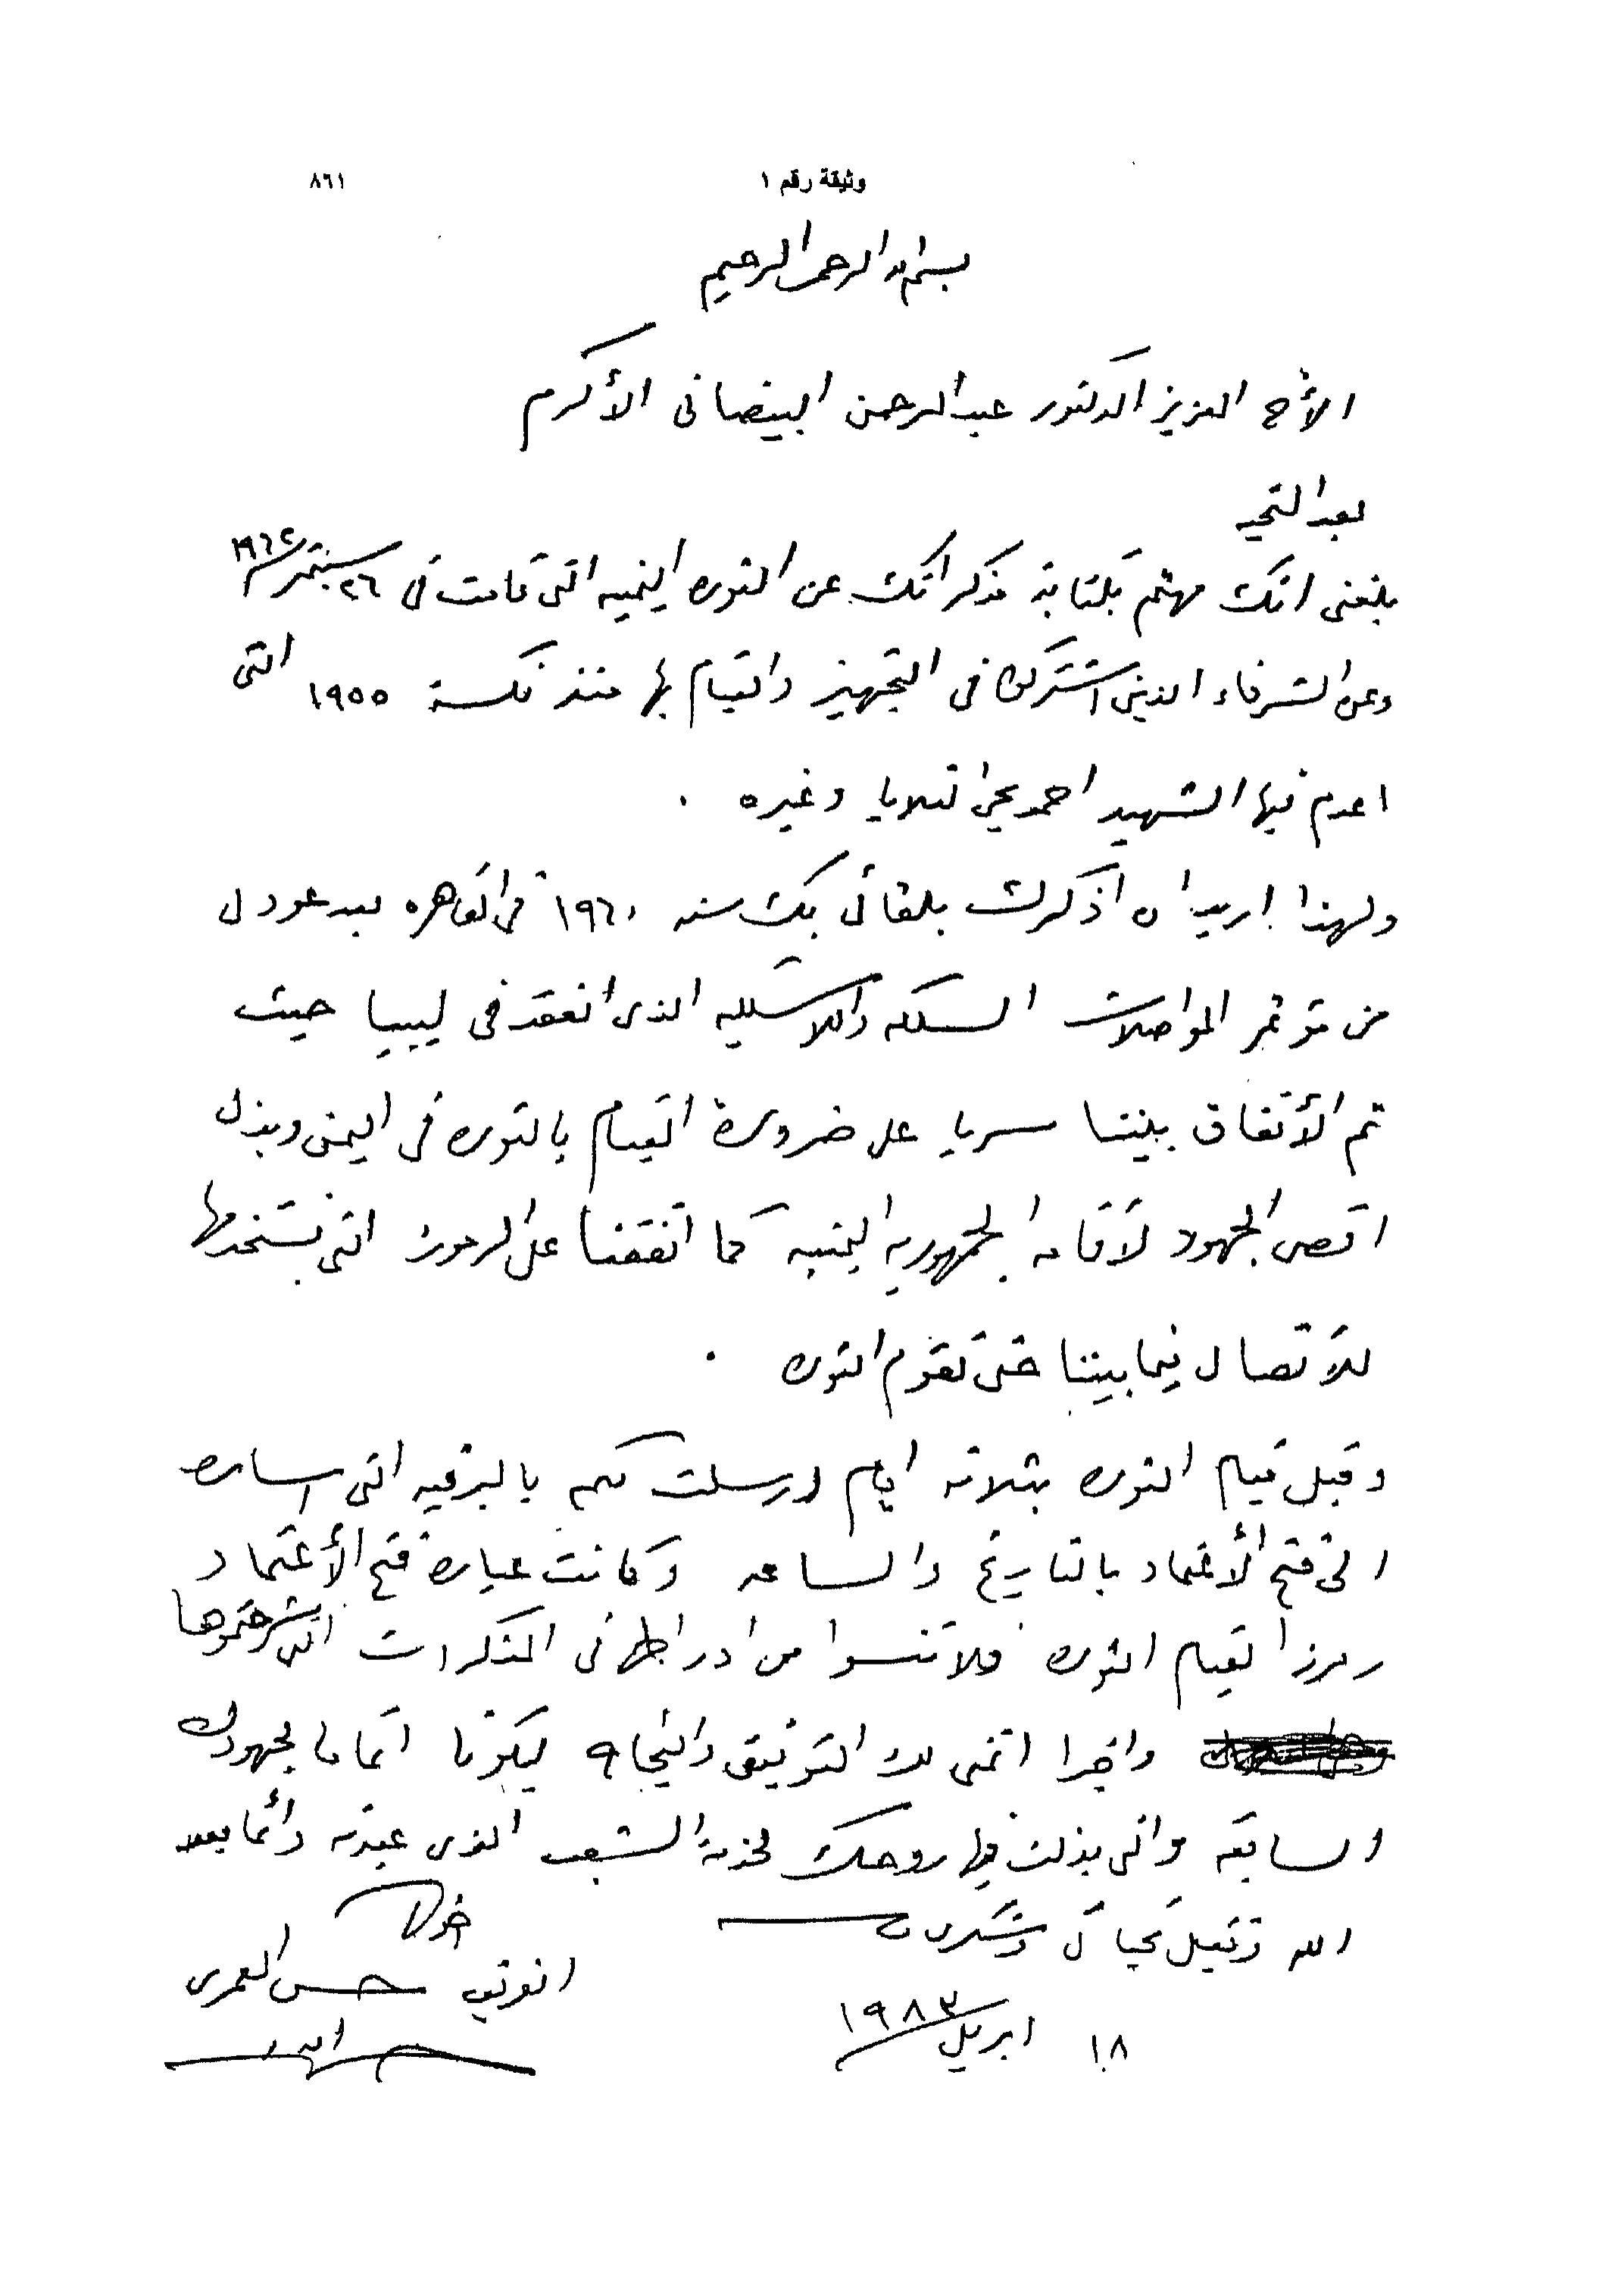 وثيقة رقم ١
٨٦١
بسم الله الرحمن الرحيم
الأخ العزيز الدكتور عبدالرحمن البيضانى الأكرم
بعد التحيه
بلغنى انك مهتم بكتابة مذكراتك عن الثوره اليمنيه التى قامت فى ٢٦ سبتمبر ١٩٦٢
وعن الشرفاء الذين اشتركوا فى التجهيز والقيام بها منذ نكسة ١٩٥٥ التى
اعدم فيها الشهيد احمد يحيى الثلايا وغيره .
ولهذا اريد ان اذكرك بلقائى بك سنه ١٩٦٠ فى القاهره بعد عودتى
من مؤتمر المواصلات السلكيه واللاسلكيه الذى انعقد فى ليبيا حيث
تم الأتفاق بيننا سريا على ضرورة القيام بالثوره فى اليمن وبذل
اقصى الجهود لأقامه الجمهوريه اليمنيه كما اتفقنا على الرموز التى نستخدمها
للأتصال فيما بيننا حتى تقوم الثوره .
وقبل قيام الثوره بثلاثه ايام ارسلت لكم بالبرقيه التى اشاره
الى فتح الأعتماد بالتاريخ والساعه وكانت عبارة فتح الأعتماد
رمزا لقيام الثوره فلا تنسوا من ادراجها فى المذكرات
واخيرا اتمنى لك التوفيق والنجاح ليكون اتماما لجهودك
السابقه والتى بذلت فيها روحك لخدمة الشعب الذى عبدته دائما بعد
الله وتقبل تحياتى وشكرى
اخوك
حسن العمرى
١٨ ابريل ١٩٨٣